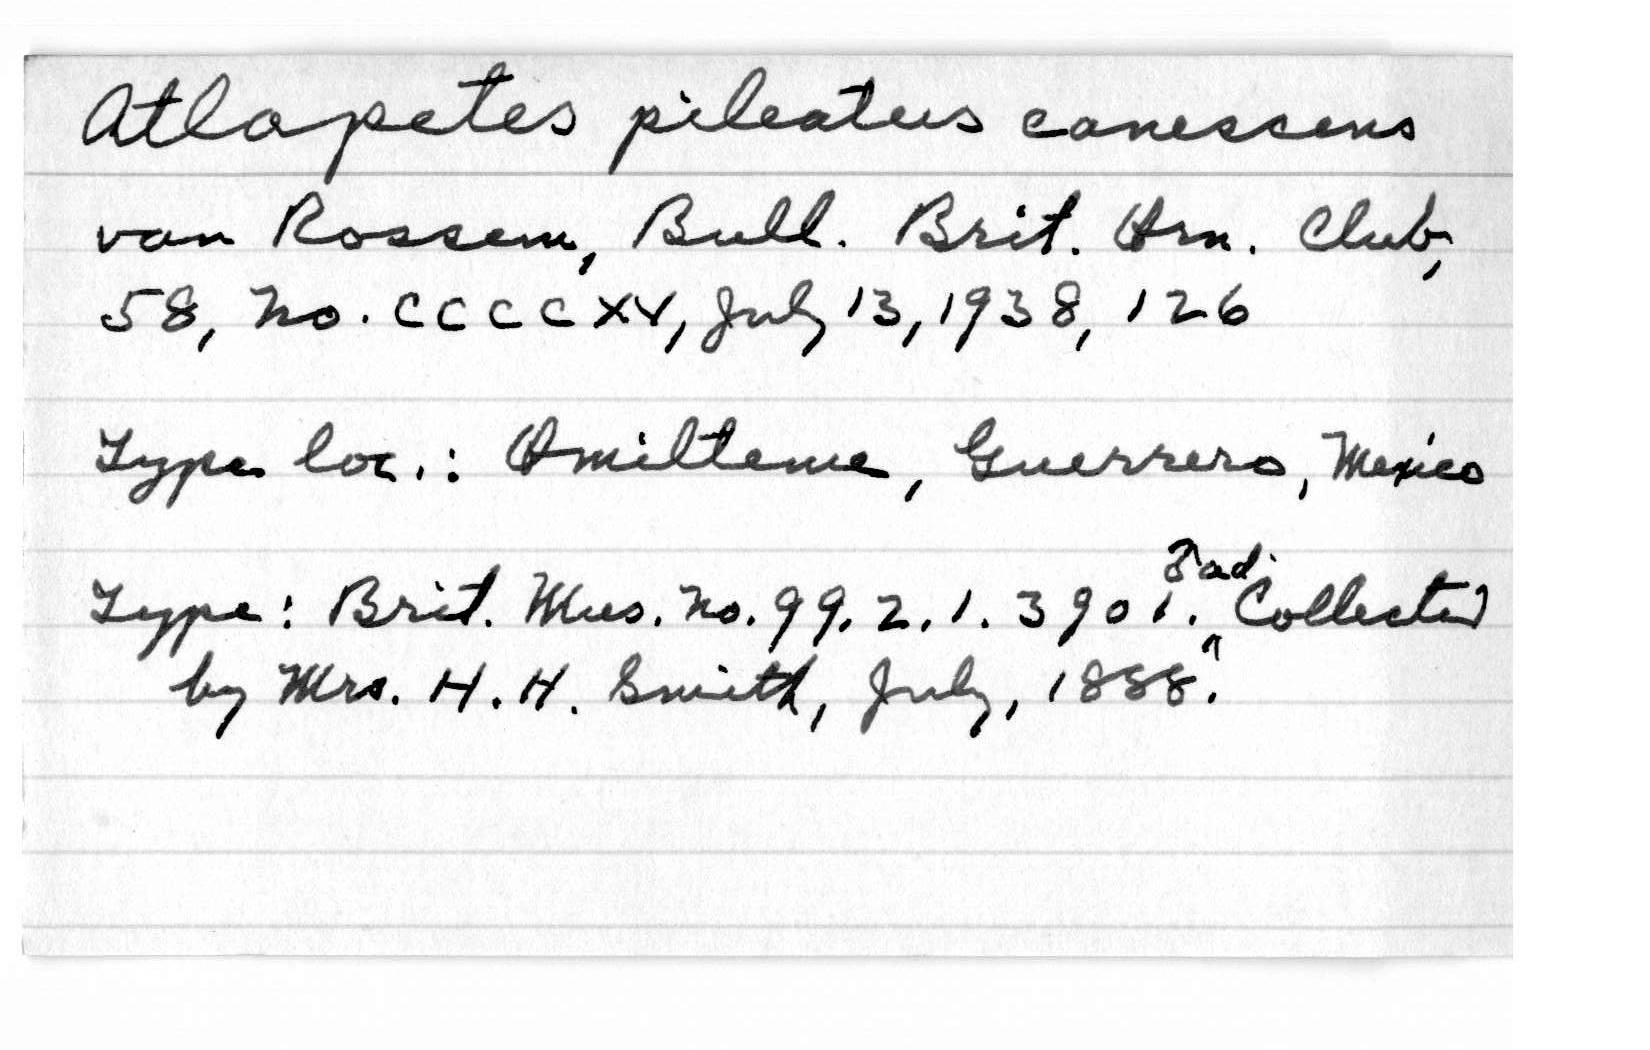 Atlapetes pileatus canescens
van Rossem, Bull. Brit. Orn. Club,
58, No. CCCCXV, July 13, 1938, 126
Type loc.: Omilteme, Guerrero, Mexico
Type: Brit. Mus. No. 99.2.1.3901. ♂ ad. Collected
by Mrs. H. H. Smith, July, 1888.